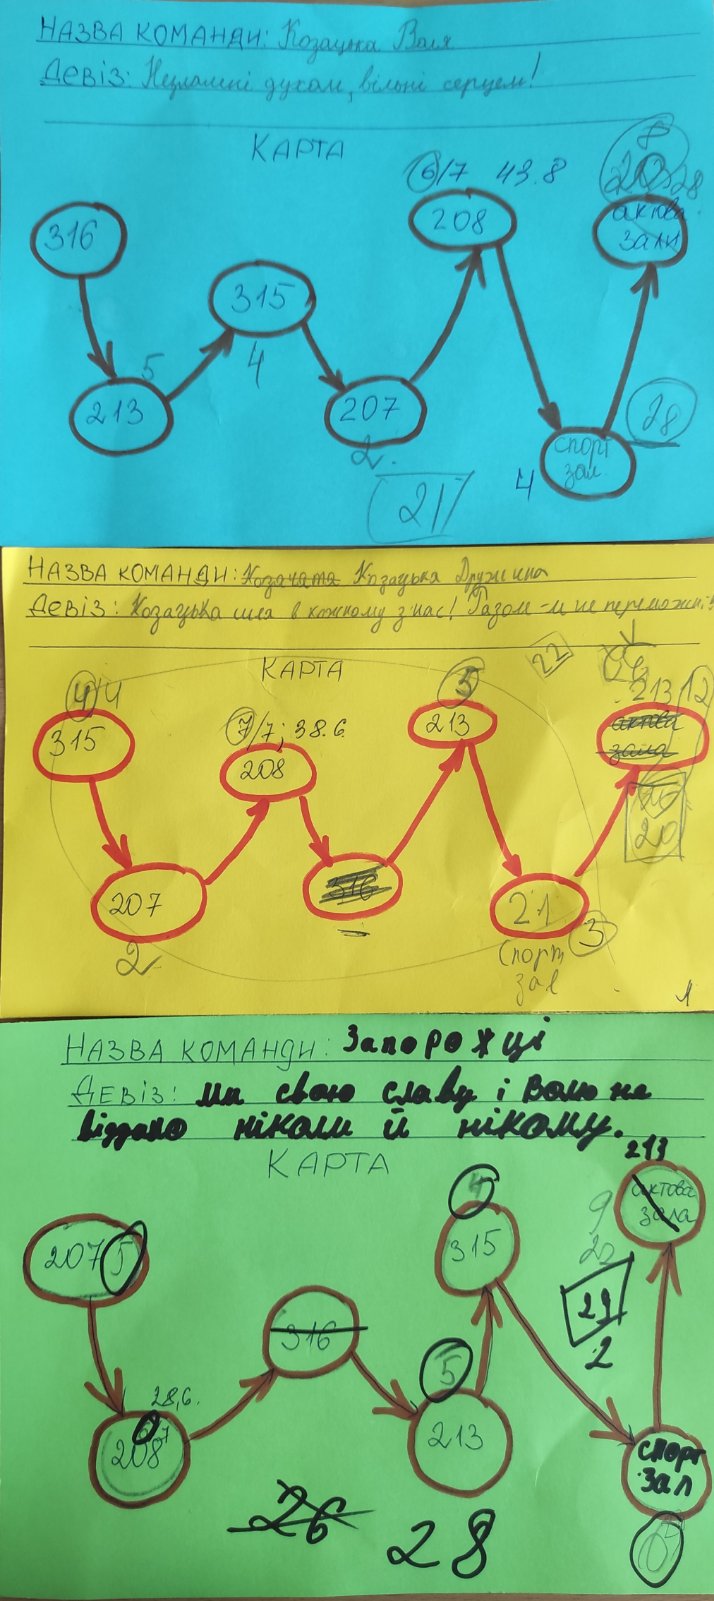 НАЗВА КОМАНДИ: Козацька Воля
ДЕВІЗ: Незламні духом, вільні серцем!
КАРТА
6/7 43.8
8
20 28
316
208
актова
зали
315
5
4
213
207
2.
28
спорт
зал
4
217
НАЗВА КОМАНДИ: Козачата Козацька Дружина
ДЕВІЗ: Козацька сила в кожному з нас! Разом - ми не переможні!
КАРТА
22
4/4
5
213 12
315
7/7; 38.6
213
актова
зала
208
20
316
207
21
3
2
Спорт
зал
1
НАЗВА КОМАНДИ: Запорожці
ДЕВІЗ: ми свою славу і Волю не
віддамо ніколи й нікому.
КАРТА
213
4
актова
зала
9
207 5
315
22
2
316
5
28,6.
208
213
спорт
зал
26
28
0